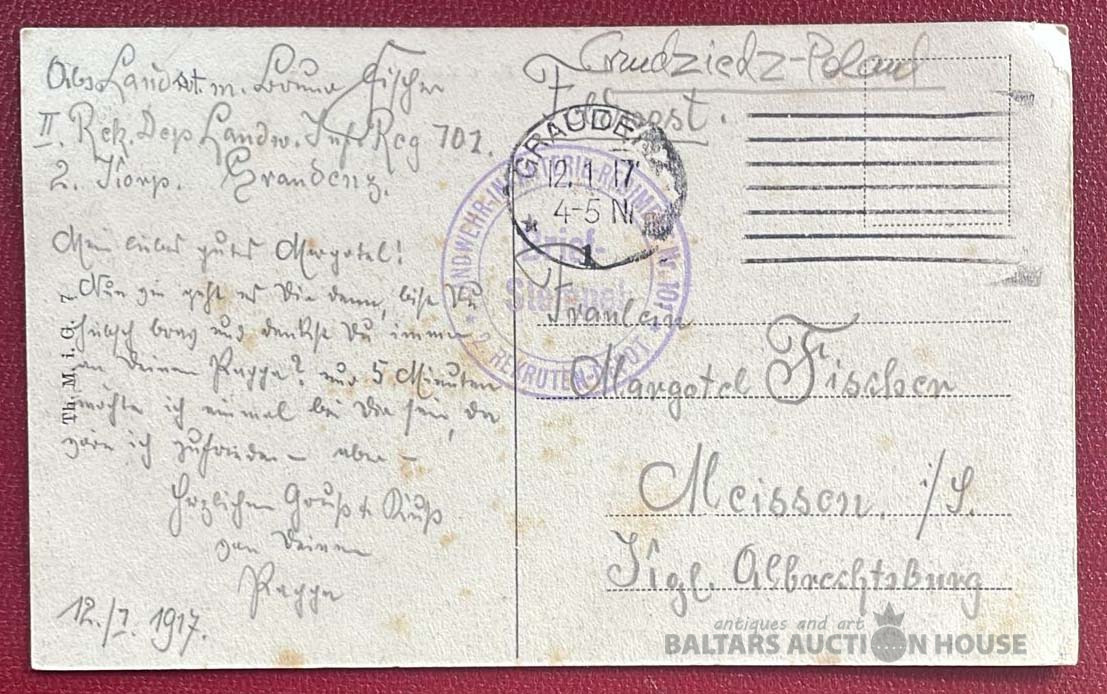 Abs. Landst. m. Bruno Fischer
II. Rek. Dep. Landw. Inf. Reg 101.
2. Korp. Graudenz.
Grudziedz-Poland
Feldpost.
GRAUDENZ
12. 1. 17
4-5 N
* 1
LANDWEHR-INFANTERIE-REGIMENT Nr. 101
* 2. REKRUTEN-DEPOT *
Brief-
Stempel
Mein liebes gutes Margotel!
Nun wie geht es Dir denn, bist Du
hübsch brav und denkst Du immer
an Deinen Pappa? nur 5 Minuten
möchte ich einmal bei Dir sein, da
wäre ich zufrieden – aber –
Herzlichen Gruß & Kuß
von Deinem
Pappa
12./I. 1917.
Th. M. i. G.
Fräulein
Margotel Fischer
Meissen. i/S.
Kgl. Albrechtsburg
antiques and art
BALTARS AUCTION HOUSE